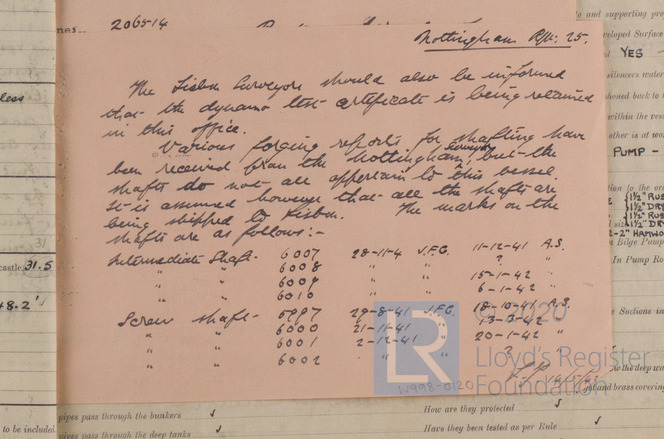 nes... 206514
Nottingham Rpt: 25.
The Lisbon Surveyors should also be informed
that the dynamo test certificate is being retained
in this office.
Various forging reports for shafting have
been received from the Nottingham Surveyors, but the
shafts do not all appertain to this vessel.
It is assumed however that all the shafts are
being shipped to Lisbon. The marks on the
shafts are as follows:-
Intermediate Shaft. 6007 28-11-4 J.F.G. 11-12-41 A.S.
" " 6008 " " ? "
" " 6009 " " 15-1-42 "
" " 6010 " " 6-1-42 "
Screw shaft- 5997 29-8-41 J.F.G. 18-10-41 A.S.
" " 6000 21-11-41 " 13-3-42 "
" " 6001 2-12-41 " 20-1-42 "
" " 6002 " " ? "
less
31
castle 31.5
+8.2'
to be included
pipes pass through the bunkers ✓
pipes pass through the deep tanks ✓
How are they protected ✓
Have they been tested as per Rule ✓
and supporting pro
veloped Surface
YES -
silencers water
shoned back to t
within the vess
other is at wor
PUMP -
ion to the or
{1½" RUS
{1½" DRY
{1½" RUS
{1½" DR
2-2" HAND
Bilge Pump
In Pump Ro
Suctions in
the deep wa
and brass covering
© 2020
LR
Lloyd's Register
Foundation
W998-0120